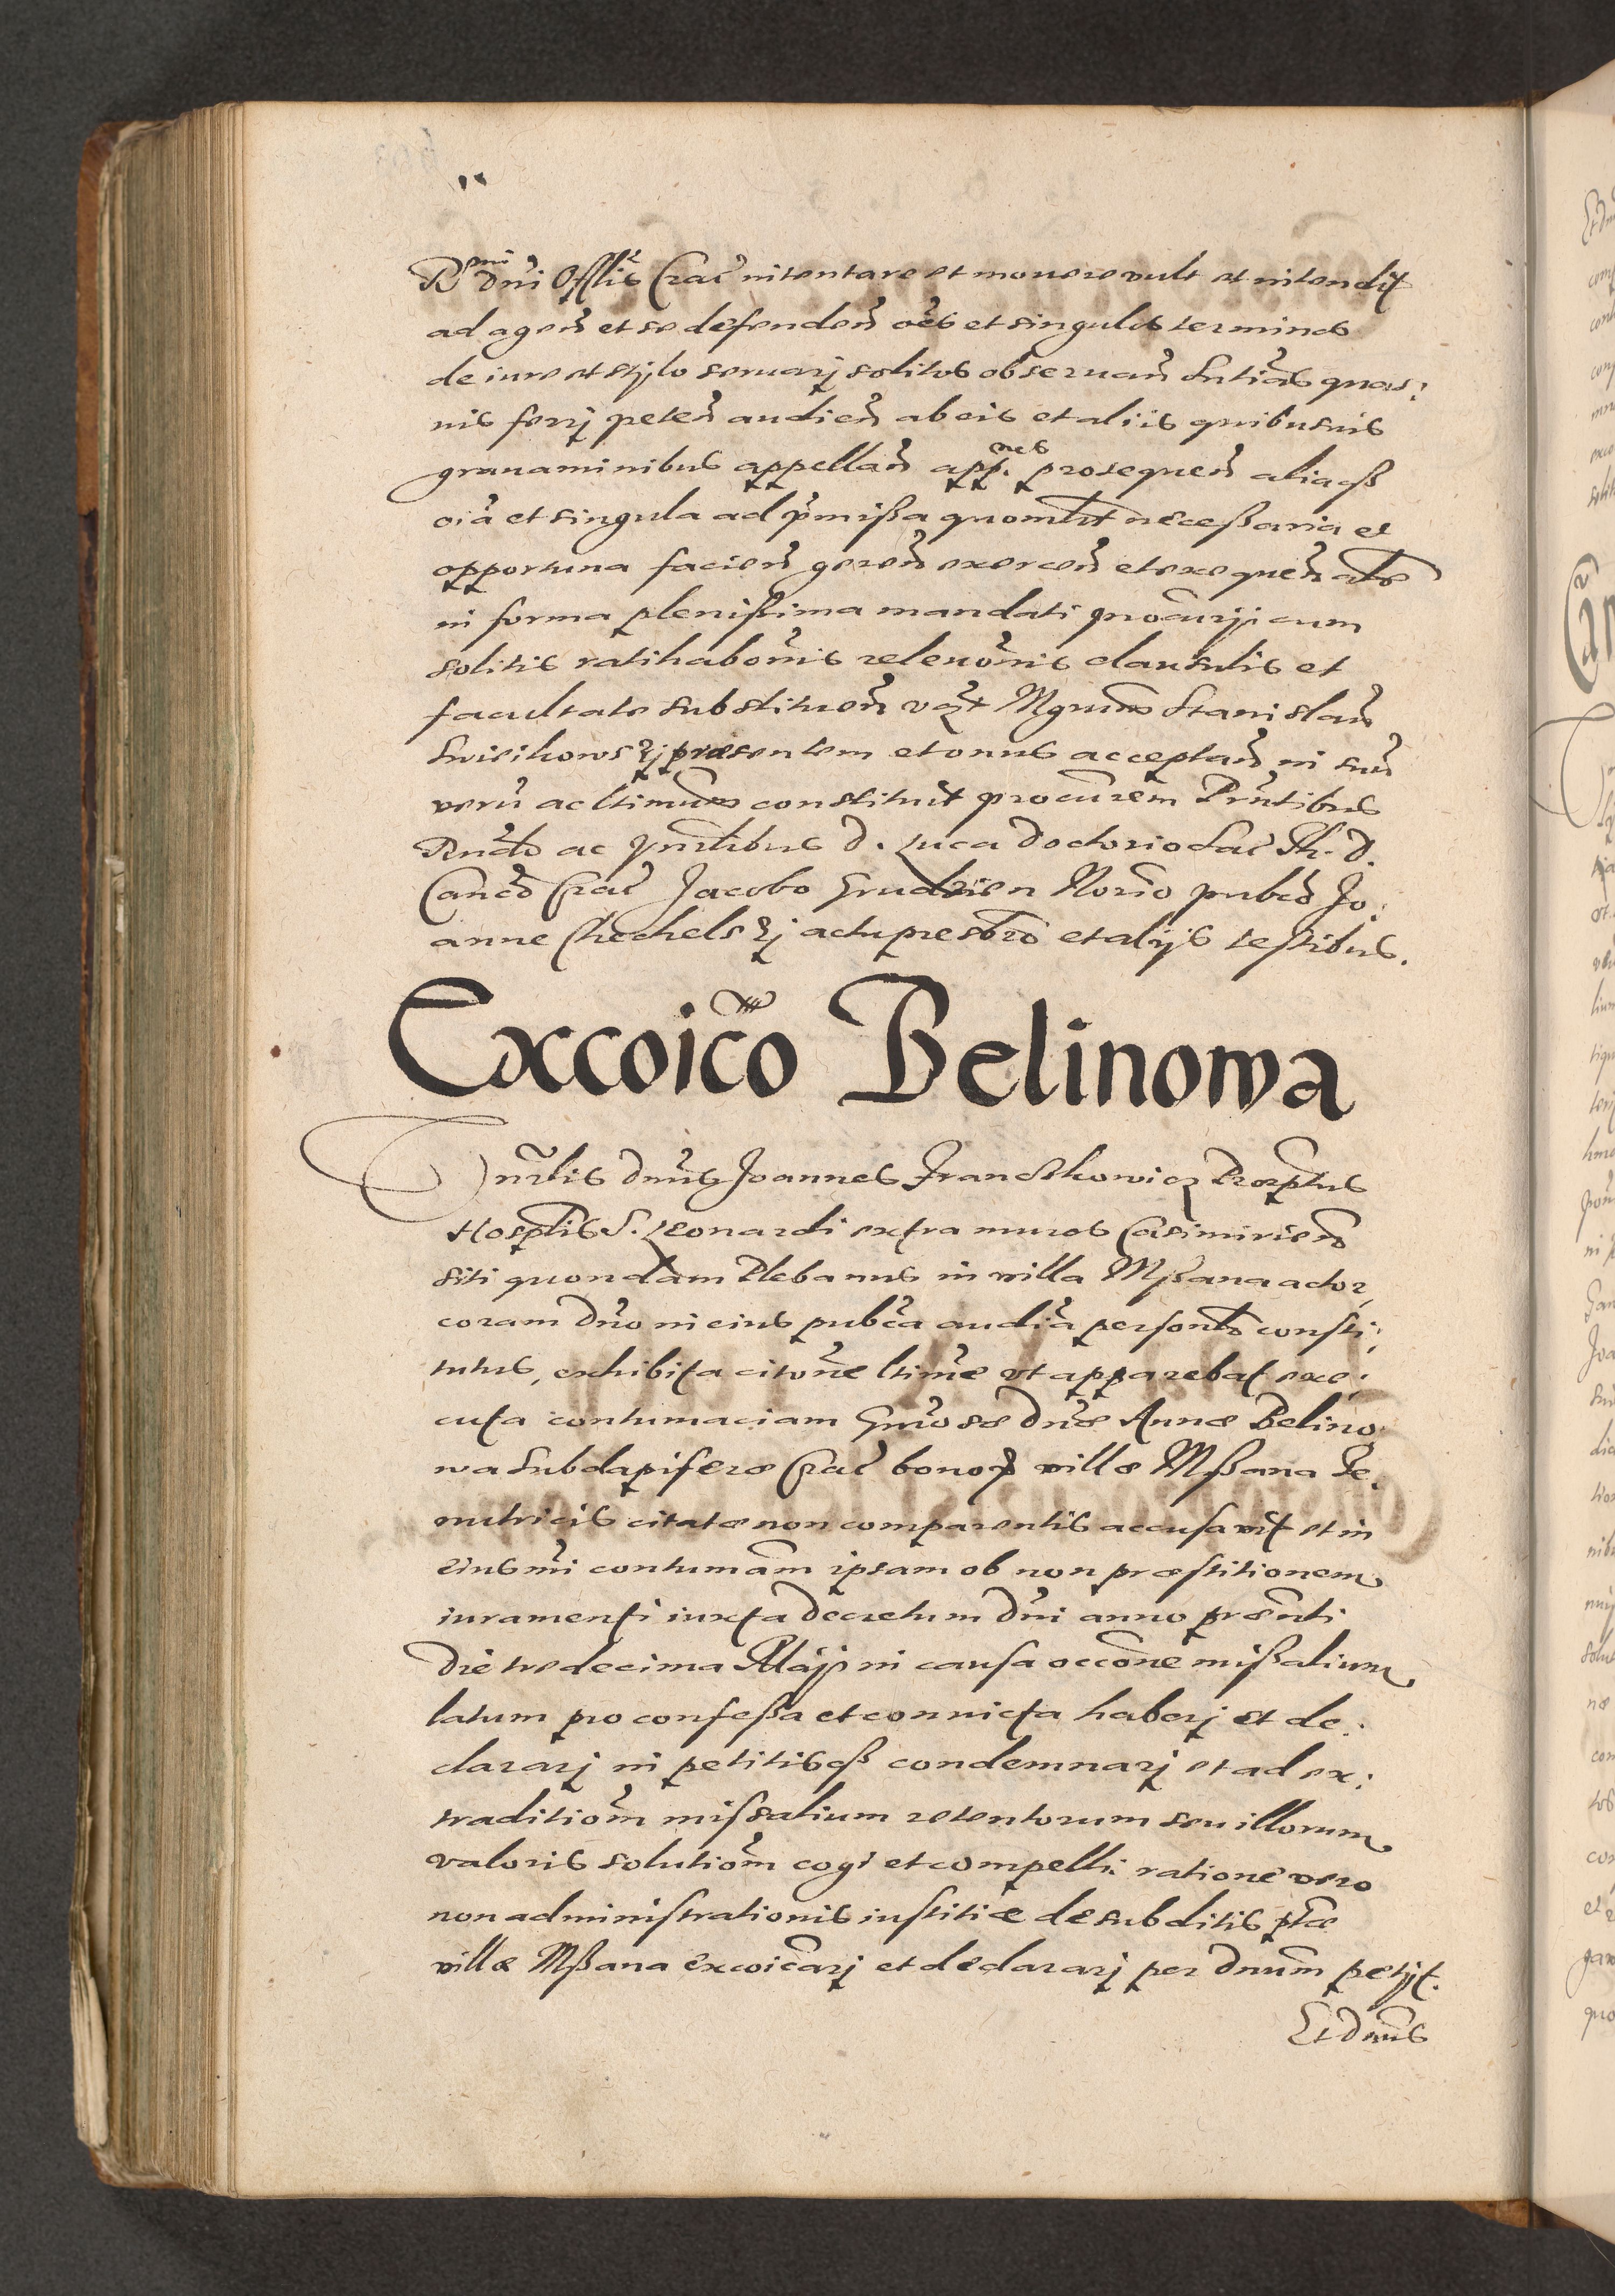 Rmi dni Offlis Crac intentare et mouere vult et intendit
ad agen et se defenden oes et singulos terminos
de iure et stylo seruarj solitos obseruan sntias quas:
uis ferrj peten audien ab eis et aliis quibusuis
grauaminibus appellan appnes prosequen aliaqß
oia et singula ad pmißa quomlt neceßaria et
opportuna facien geren exercen et exequen als
in forma plenißima mandati procurij cum
solitis ratihabonis releuonis clausulis et
facultate substituen vzt Mgnum Stanislau
presentem et onus acceptan in suu
veru ac ltimum constituit procurem Pntibus
Rndo ac d. Luca Doctorio Sac Th. D.
Canco Crac Jacobo Norio pubco Jo:
anne Chechelskj actu presbro et alijs testibus.
Excoico Belinowa
dnus Joannes Franczkowicz Praeptus
Hosplis S. Leonardi extra muros Casimirien
siti quondam Plebanus in villa Mßana actor,
coram dno in eius pubca audia personlr consti:
tutus, exhibita citone ltime vt apparebat exe:
cuta contumaciam Gnrosae dnae Annae Belino:
wa Subdapiferae Crac bonor villae Mßana Te:
nutricis citatae non comparentis accusauit et in
eiusmi contumam ipsam ob non praestitionem
iuramenti iuxta decretum dni anno praenti
die tredecima Maij in causa occone mißalium
latum pro confeßa et conuicta haberj et de:
clararj in petitisqß condemnarj et ad ex:
traditiom missalium retentorum seu illorum
valoris solutiom cogi et compelli ratione vero
non administrationis iustitiae de subditis ptae
villae Mßana excoicarj et declararj per dnum petijt.
Et dnus